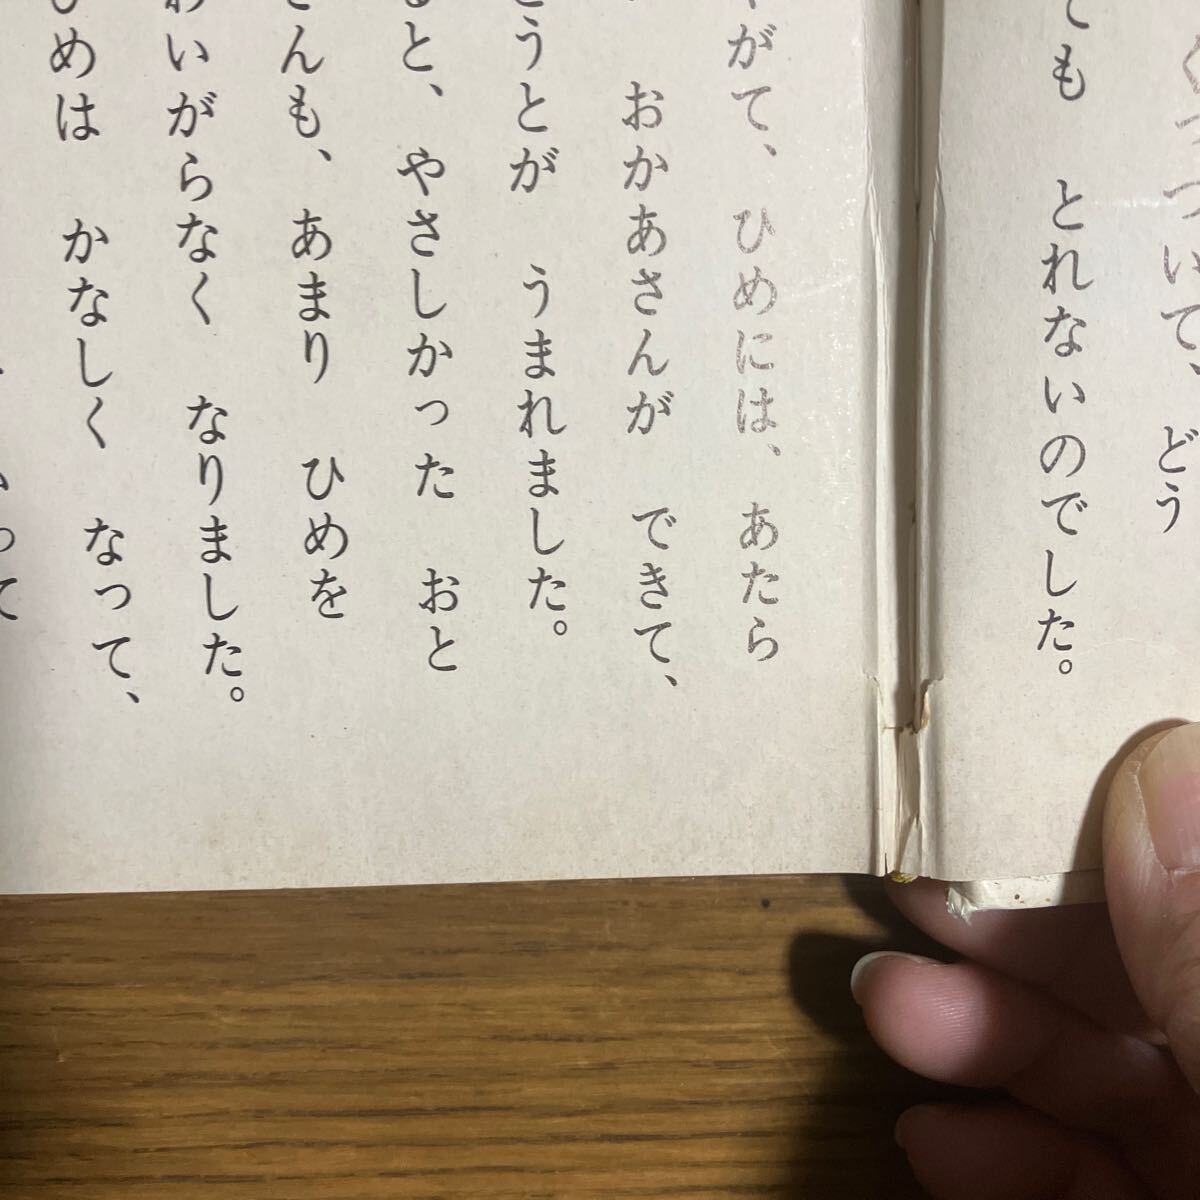 くっついて、どう
ても とれないのでした。
がて、ひめには、あたら
おかあさんが できて、
うとが うまれました。
と、やさしかった おと
さんも、あまり ひめを
わいがらなく なりました。
ひめは かなしく なって、
って